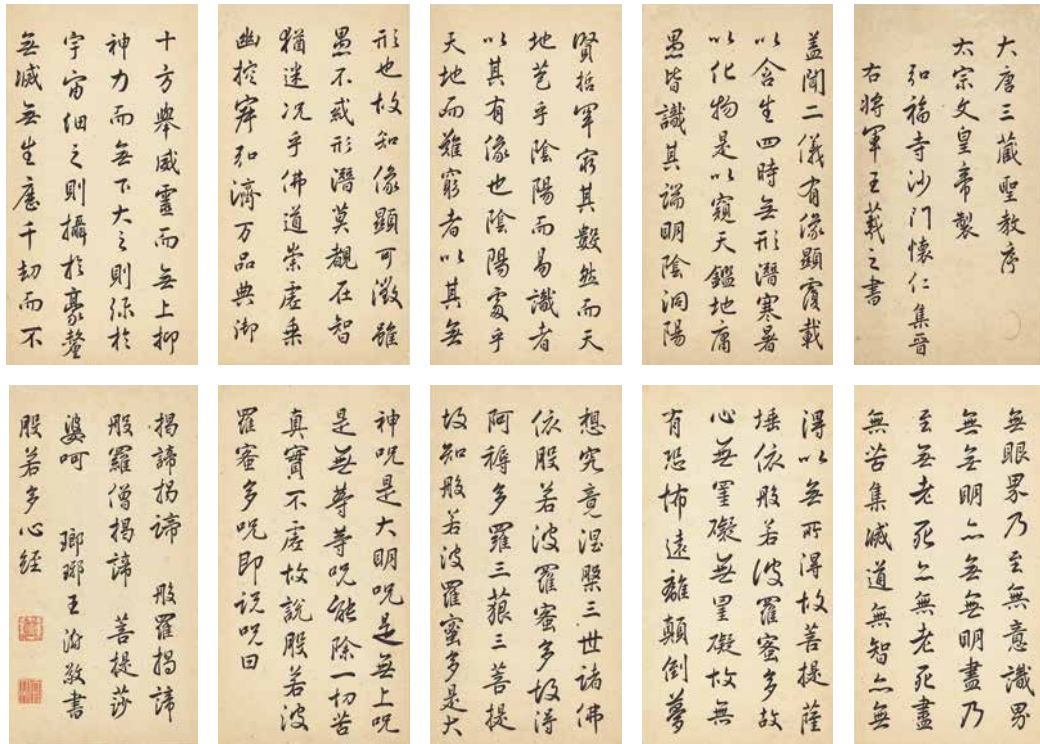 大唐三藏聖教序
太宗文皇帝製
弘福寺沙門懷仁集晉
右將軍王羲之書
盖聞二儀有像顯覆載
以含生四時無形潛寒暑
以化物是以窺天鑑地庸
愚皆識其端明陰洞陽
賢哲罕窮其數然而天
地苞乎陰陽而易識者
以其有像也陰陽處乎
天地而難窮者以其無
形也故知像顯可徵雖
愚不惑形潛莫覩在智
猶迷况乎佛道崇虛乘
幽控寂弘濟万品典御
十方舉威靈而無上抑
神力而無下大之則弥於
宇宙細之則攝於豪釐
無滅無生歷千劫而不
無眼界乃至無意識界
無無明亦無無明盡乃
至無老死亦無老死盡
無苦集滅道無智亦無
得以無所得故菩提薩
埵依般若波羅蜜多故
心無罣礙無罣礙故無
有恐怖遠離顛倒夢
想究竟涅槃三世諸佛
依般若波羅蜜多故得
阿耨多羅三藐三菩提
故知般若波羅蜜多是大
神呪是大明呪是無上呪
是無等等呪能除一切苦
真實不虛故說般若波
羅蜜多呪即說呪曰
揭諦揭諦 般羅揭諦
般羅僧揭諦 菩提莎
婆呵 瑯琊王澍敬書
般若多心経